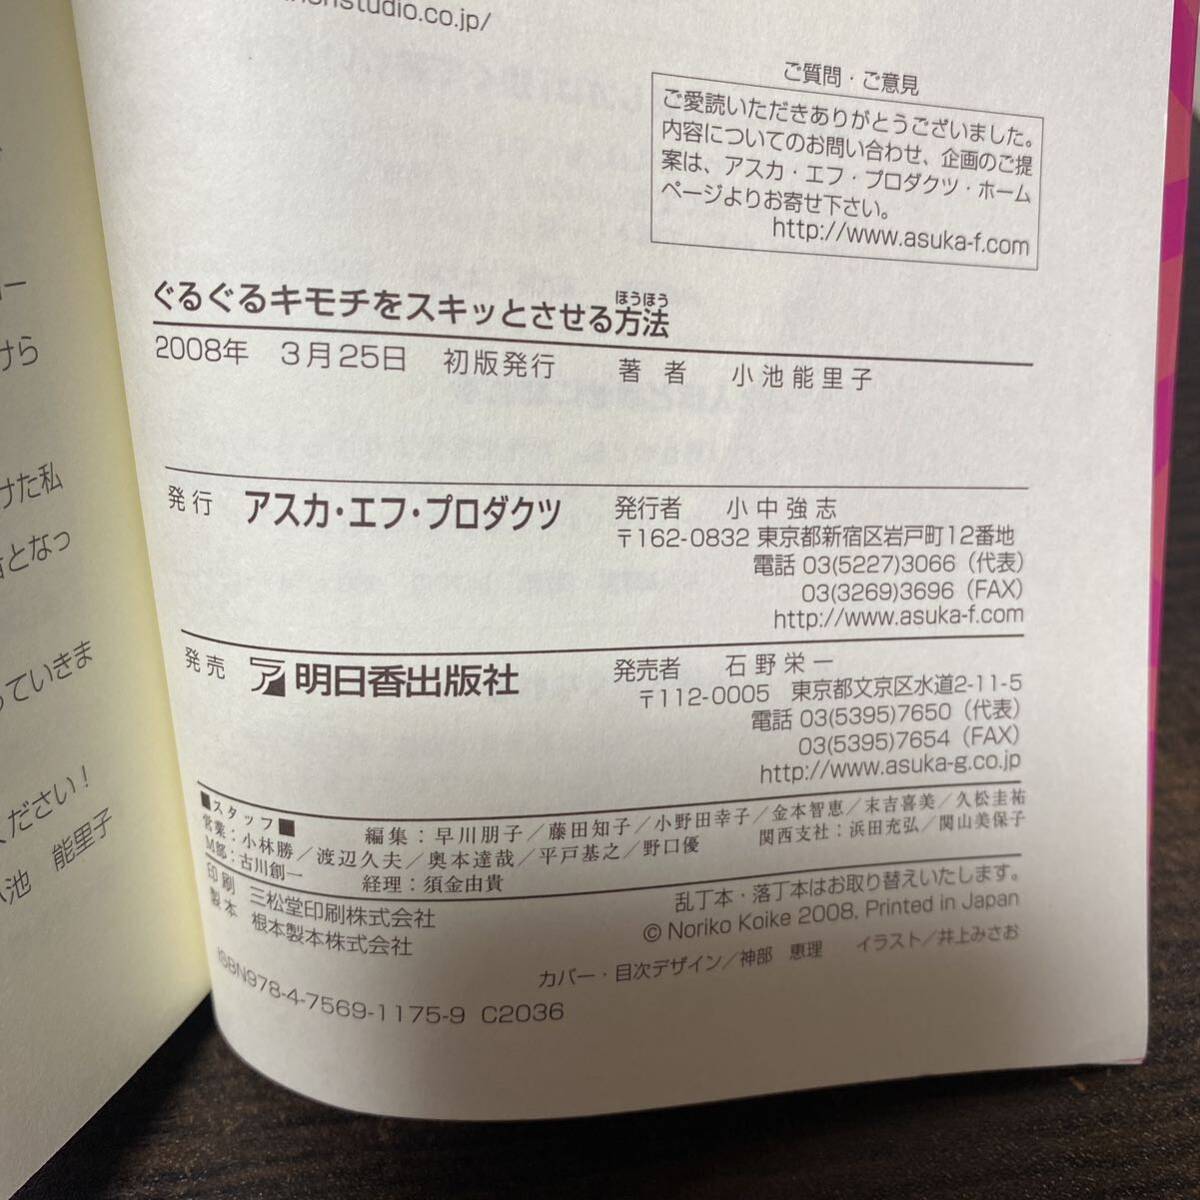 studio.co.jp/
ご質問・ご意見
ご愛読いただきありがとうございました。
内容についてのお問い合わせ、企画のご提
案は、アスカ・エフ・プロダクツ・ホーム
ページよりお寄せ下さい。
http://www.asuka-f.com
ほうほう
ぐるぐるキモチをスキッとさせる方法
2008年 3月25日 初版発行 著者 小池能里子
発行 アスカ・エフ・プロダクツ 発行者 小中強志
〒162-0832 東京都新宿区岩戸町12番地
電話 03(5227)3066(代表)
03(3269)3696(FAX)
http://www.asuka-f.com
発売 明日香出版社 発売者 石野栄一
〒112-0005 東京都文京区水道2-11-5
電話 03(5395)7650(代表)
03(5395)7654(FAX)
http://www.asuka-g.co.jp
■スタッフ■ 編集:早川朋子/藤田知子/小野田幸子/金本智恵/末吉喜美/久松圭祐
営業:小林勝/渡辺久夫/奥本達哉/平戸基之/野口優 関西支社:浜田充弘/関山美保子
M部:古川創一 経理:須金由貴
印刷 三松堂印刷株式会社
製本 根本製本株式会社
乱丁本・落丁本はお取り替えいたします。
© Noriko Koike 2008, Printed in Japan
カバー・目次デザイン/神部 恵理 イラスト/井上みさお
ISBN978-4-7569-1175-9 C2036
けら
けた私
となっ
っていきま
ください!
小池 能里子